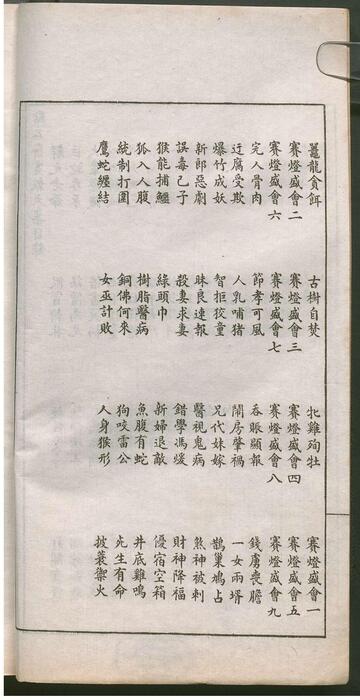 鼉龍貪餌　古樹自焚　牝雞殉牡　賽燈盛會一
賽燈盛會二　賽燈盛會三　賽燈盛會四　賽燈盛會五
賽燈盛會六　賽燈盛會七　賽燈盛會八　賽燈盛會九
完人骨肉　節孝可風　吞賑顯報　錢虜喪膽
迂腐受欺　人乳哺豬　鬧房肇禍　一女兩壻
爆竹成妖　智拒狡童　兄代妹嫁　鵲巢鳩占
新郎惡劇　昧良速報　醫視鬼病　煞神被刺
誤毒己子　殺妻求妻　錯學馮煖　財神降福
猴能捕鱷　綠頭巾　新婦退敵　優宿空箱
狐入人腹　樹脂醫病　魚腹有蛇　井底雞鳴
統制打圍　銅佛何來　狗咬雷公　先生有命
鷹蛇纏結　女巫計敗　人身猴形　披蓑禦火